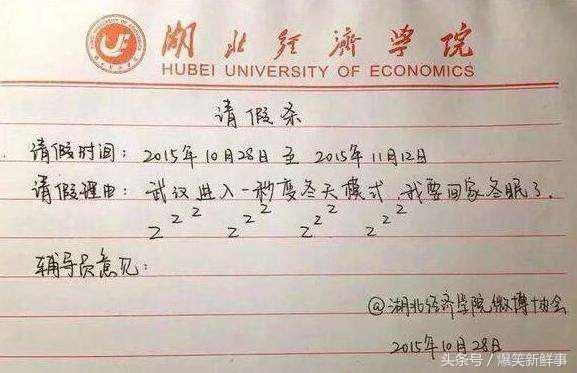 湖北经济学院
HUBEI UNIVERSITY OF ECONOMICS
请假条
请假时间：2015年10月28日 至 2015年11月12日
请假理由：武汉进入一秒变冬天模式，我要回家冬眠了.
zzz zzz zzz zzz
辅导员意见：
@湖北经济学院微博协会
2015年10月28日
头条号／爆笑新鲜事